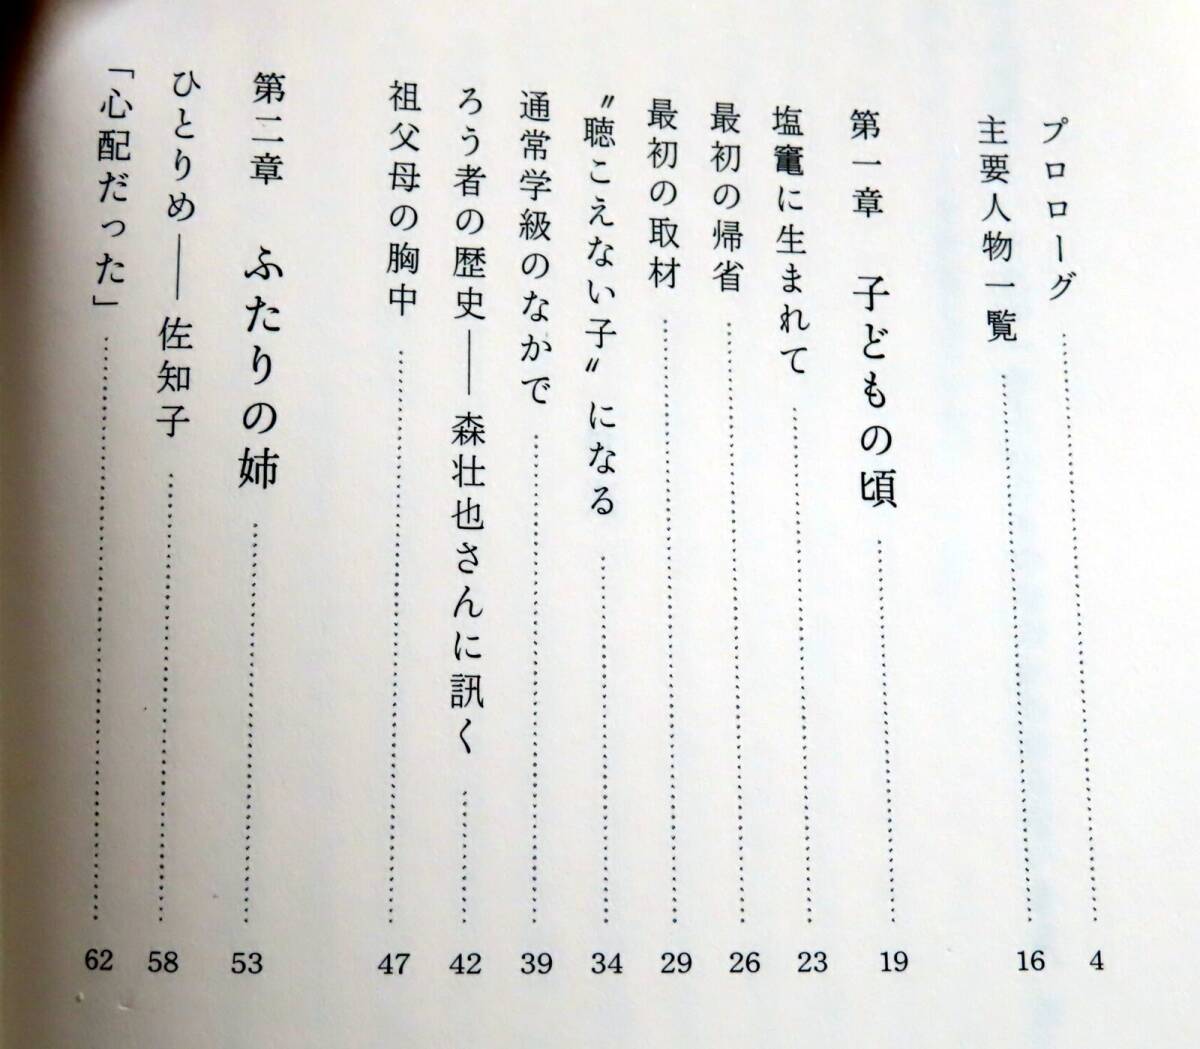 プロローグ 4
主要人物一覧 16
第一章 子どもの頃 19
塩竈に生まれて 23
最初の帰省 26
最初の取材 29
〝聴こえない子〟になる 34
通常学級のなかで 39
ろう者の歴史――森壮也さんに訊く 42
祖父母の胸中 47
第二章 ふたりの姉 53
ひとりめ――佐知子 58
「心配だった」 62